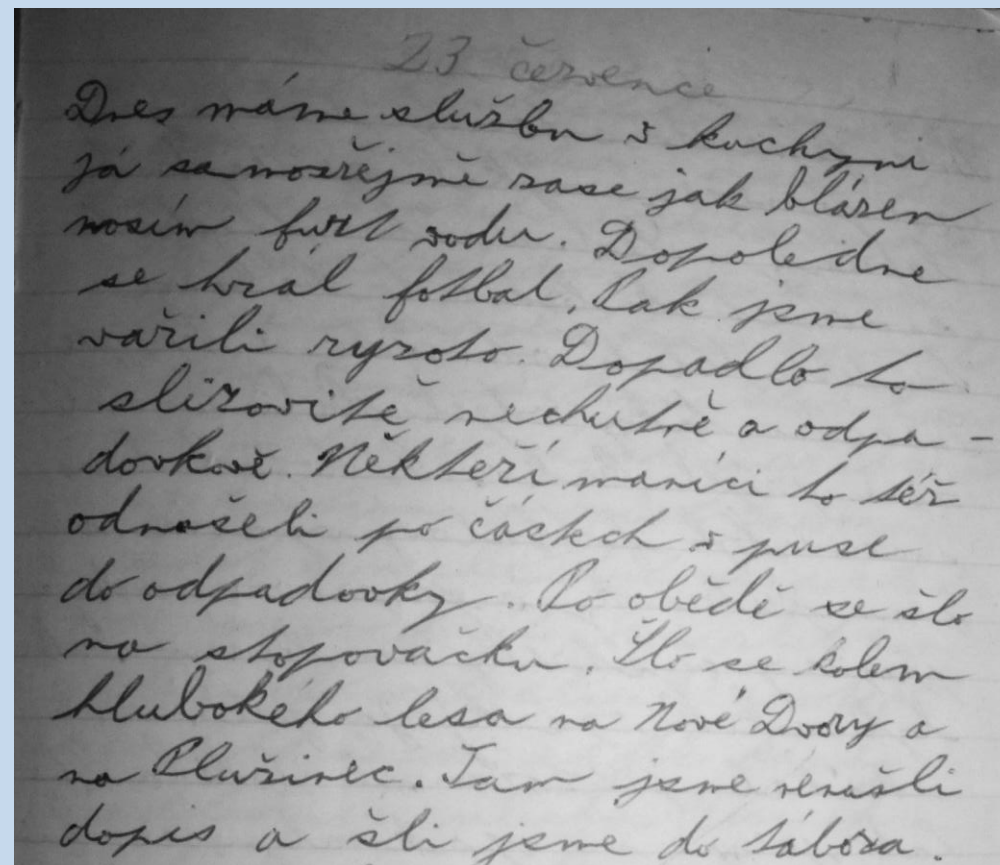 23 července
Dnes máme službu v kuchyni
já samozřejmě zase jak blázen
nosím furt vodu. Dopoledne
se hrál fotbal. Pak jsme
vařili ryzoto. Dopadlo to
slizovitě nechutně a odpa-
dovkově. Někteří maníci to též
odnášeli po částech v puse
do odpadovky. Po obědě se šlo
na stopovačku. Šlo se kolem
hlubokého lesa na Nové Dvory a
na Plužinec. Tam jsme nenašli
dopis a šli jsme do tábora.